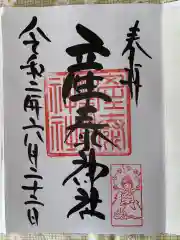 奉拝
産泰神社
令和二年六月二十二日